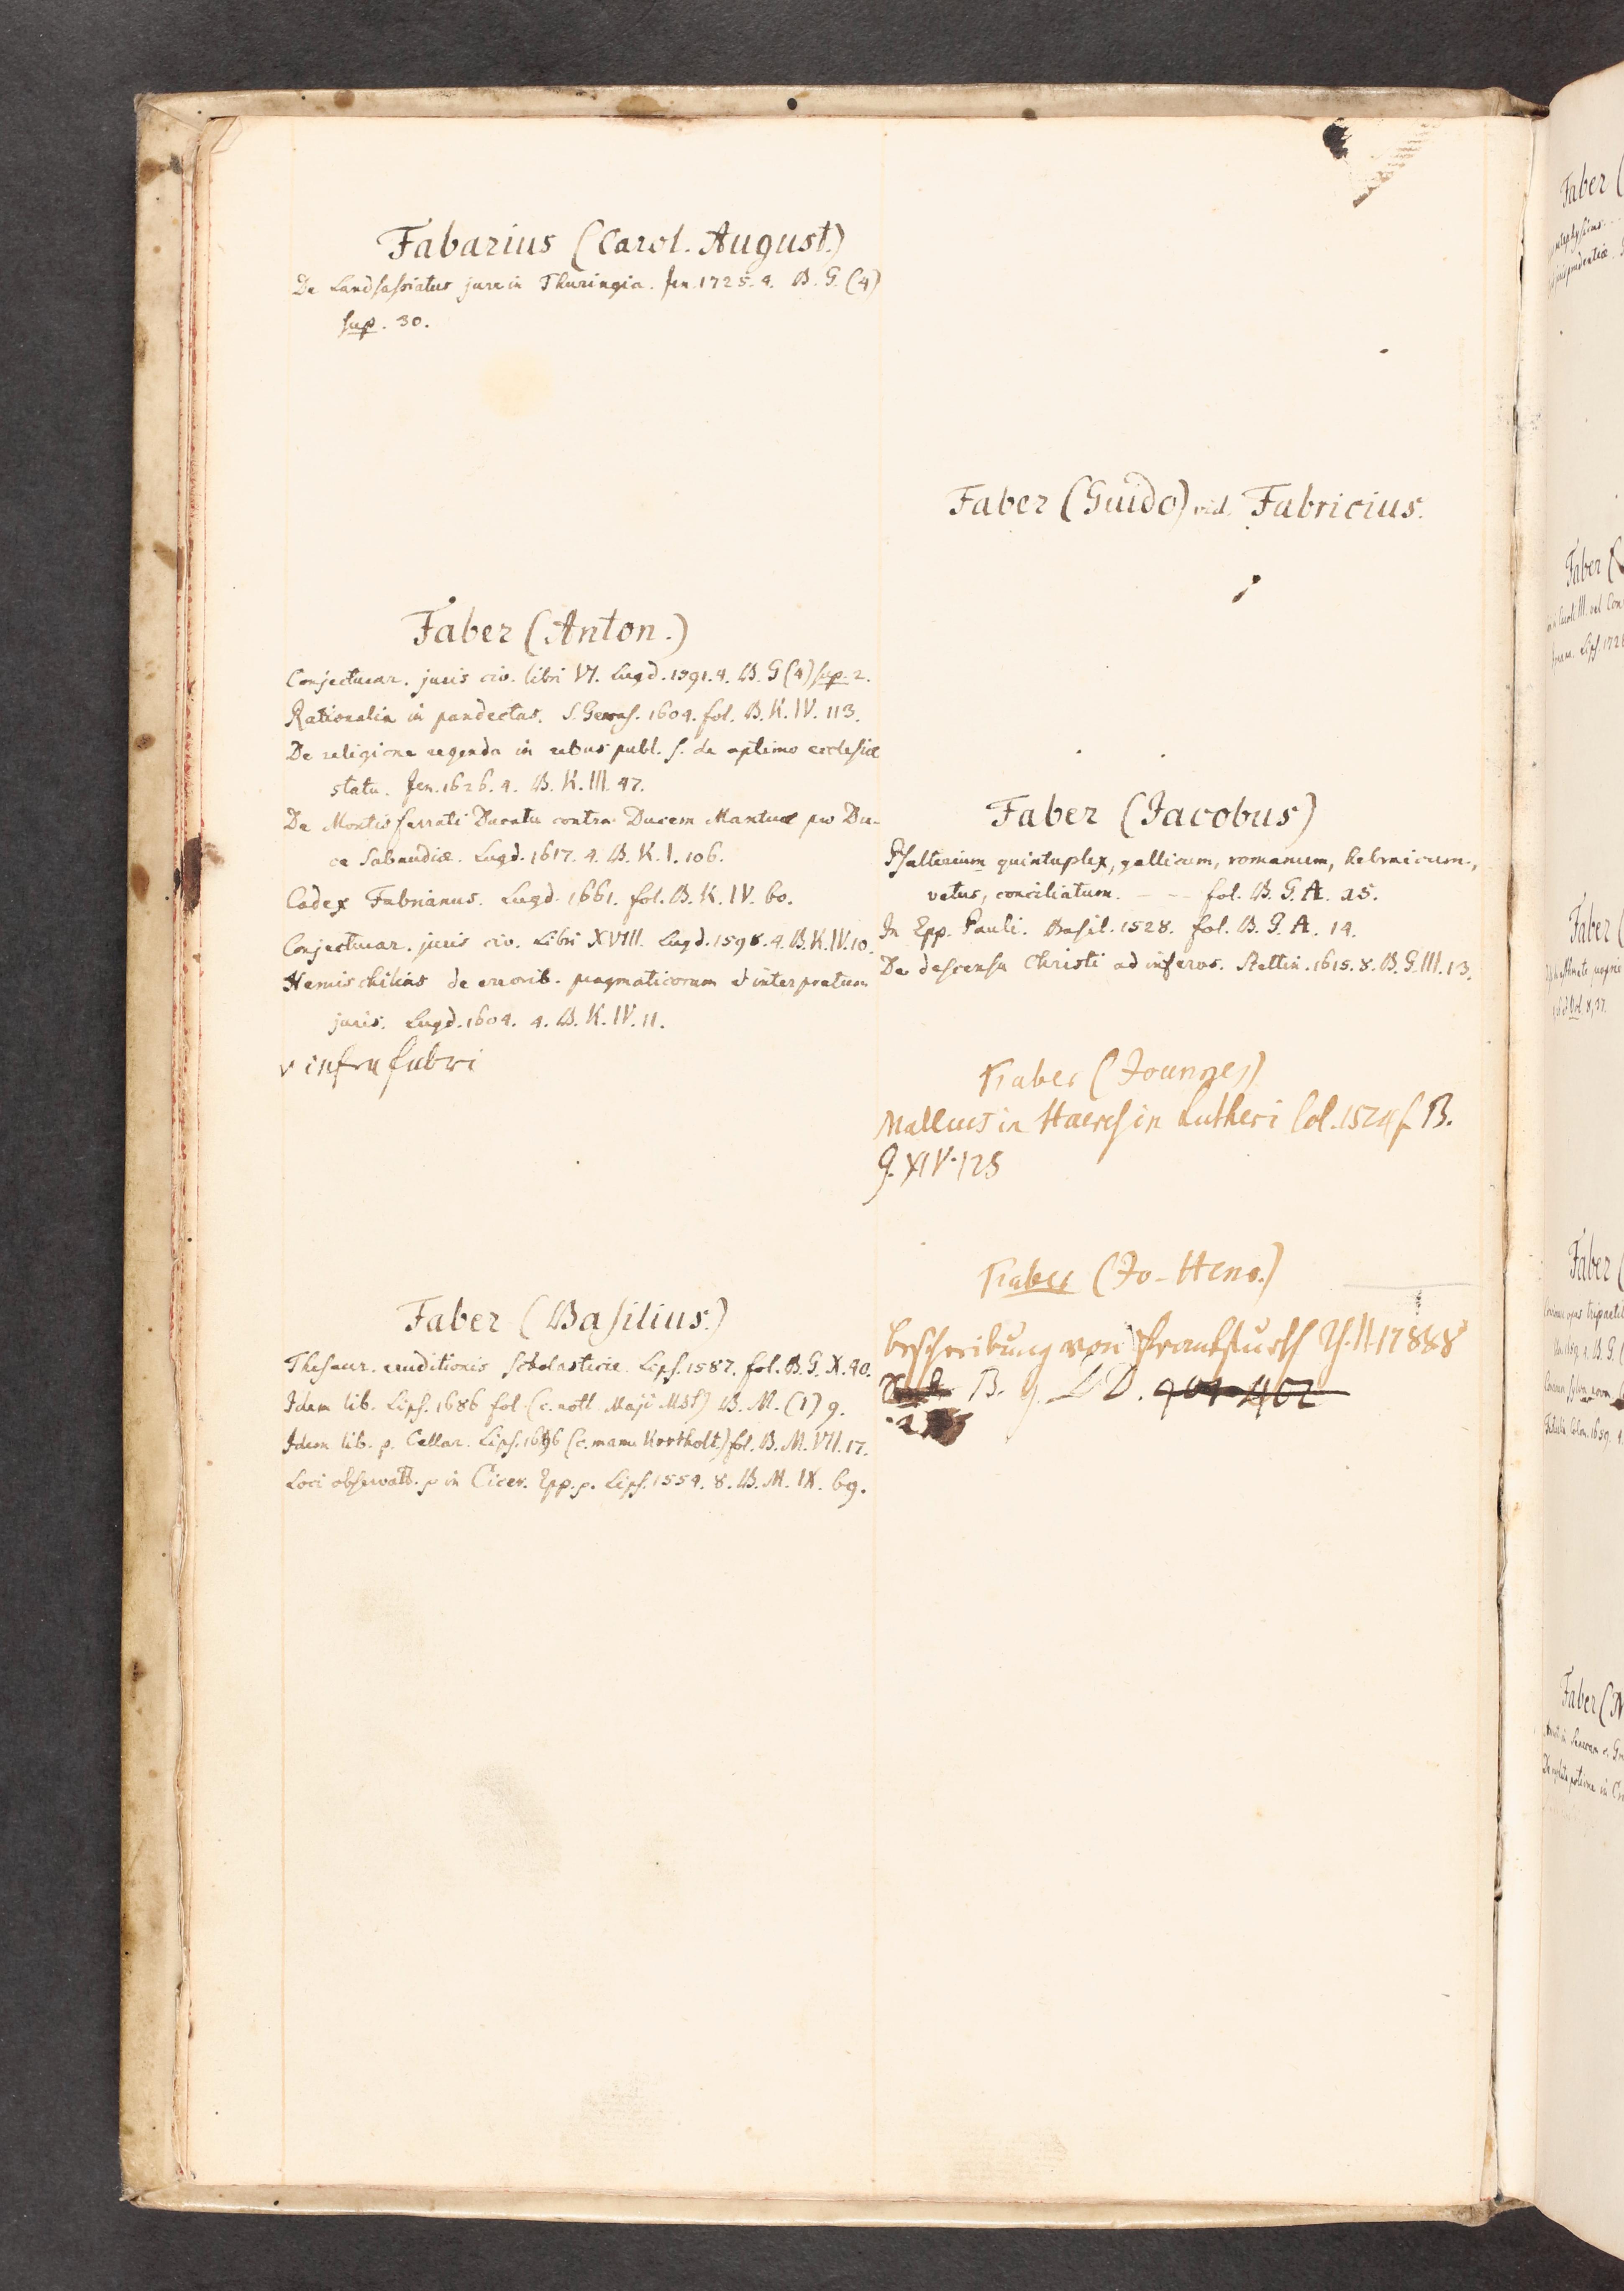 Fabarius (Carol. August.)
De Landsassiatus jure in Thuringia. Jen. 1725. 4. B. G. (4)
sup. 30.
Faber (Anton.)
Conjecturar. juris civ. libri VI. Lugd. 1591. 4. B. G (4) sup. 2.
Rationalia in pandectas. S. Gervas. 1604. fol. B. K. IV. 113.
De religione regenda in rebus publ. s. de optimo ecclesiæ
statu. Jen. 1626. 4. B. K. III. 47.
De Montisferrati Ducatu contra Ducem Mantuæ pro Du-
ce Sabaudiæ. Lugd. 1617. 4. B. K. I. 106.
Codex Fabrianus. Lugd. 1661. fol. B. K. IV. 60.
Conjecturar. juris civ. Libri XVIII. Lugd. 1598. 4. B. K. IV. 10.
Hemischilias de errorib. pragmaticorum et interpretum
juris. Lugd. 1604. 4. B. K. IV. 11.
v infra fabri
Faber (Basilius.)
Thesaur. eruditionis scholasticæ. Lips. 1587. fol. B. G. X. 40.
Idem lib. Lips. 1686 fol (c. nott. Maji MSt) B. M. (1) 9.
Idem lib. p. Cellar. Lips. 1696 (c. manu Kortholt.) fol. B. M. VII. 17.
Loci observatt. p in Cicer. Epp. p. Lips. 1554. 8. B. M. IX. 69.
Faber (Guido) vid. Fabricius.
Faber (Jacobus)
Psalterium quintuplex, gallicum, romanum, hebraicum,
vetus, conciliatum. - - - fol. B. G. A. 25.
In Epp. Pauli. Basil. 1528. fol. B. G. A. 14.
De descensu Christi ad inferos. Stettin. 1615. 8. B. G. III. 13.
Faber (Joannes)
Malleus in Haeresin Lutheri Col. 1524 f B.
G. XIV. 125
Faber (Jo-Henr.)
Beschreibung von Frankfurth 1788 8
B. G. DD. 402
Faber (
Faber (
Faber (
Faber (
Faber (